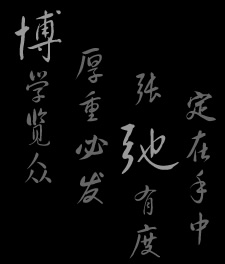 博学览众
厚重必发
张弛有度
定在手中